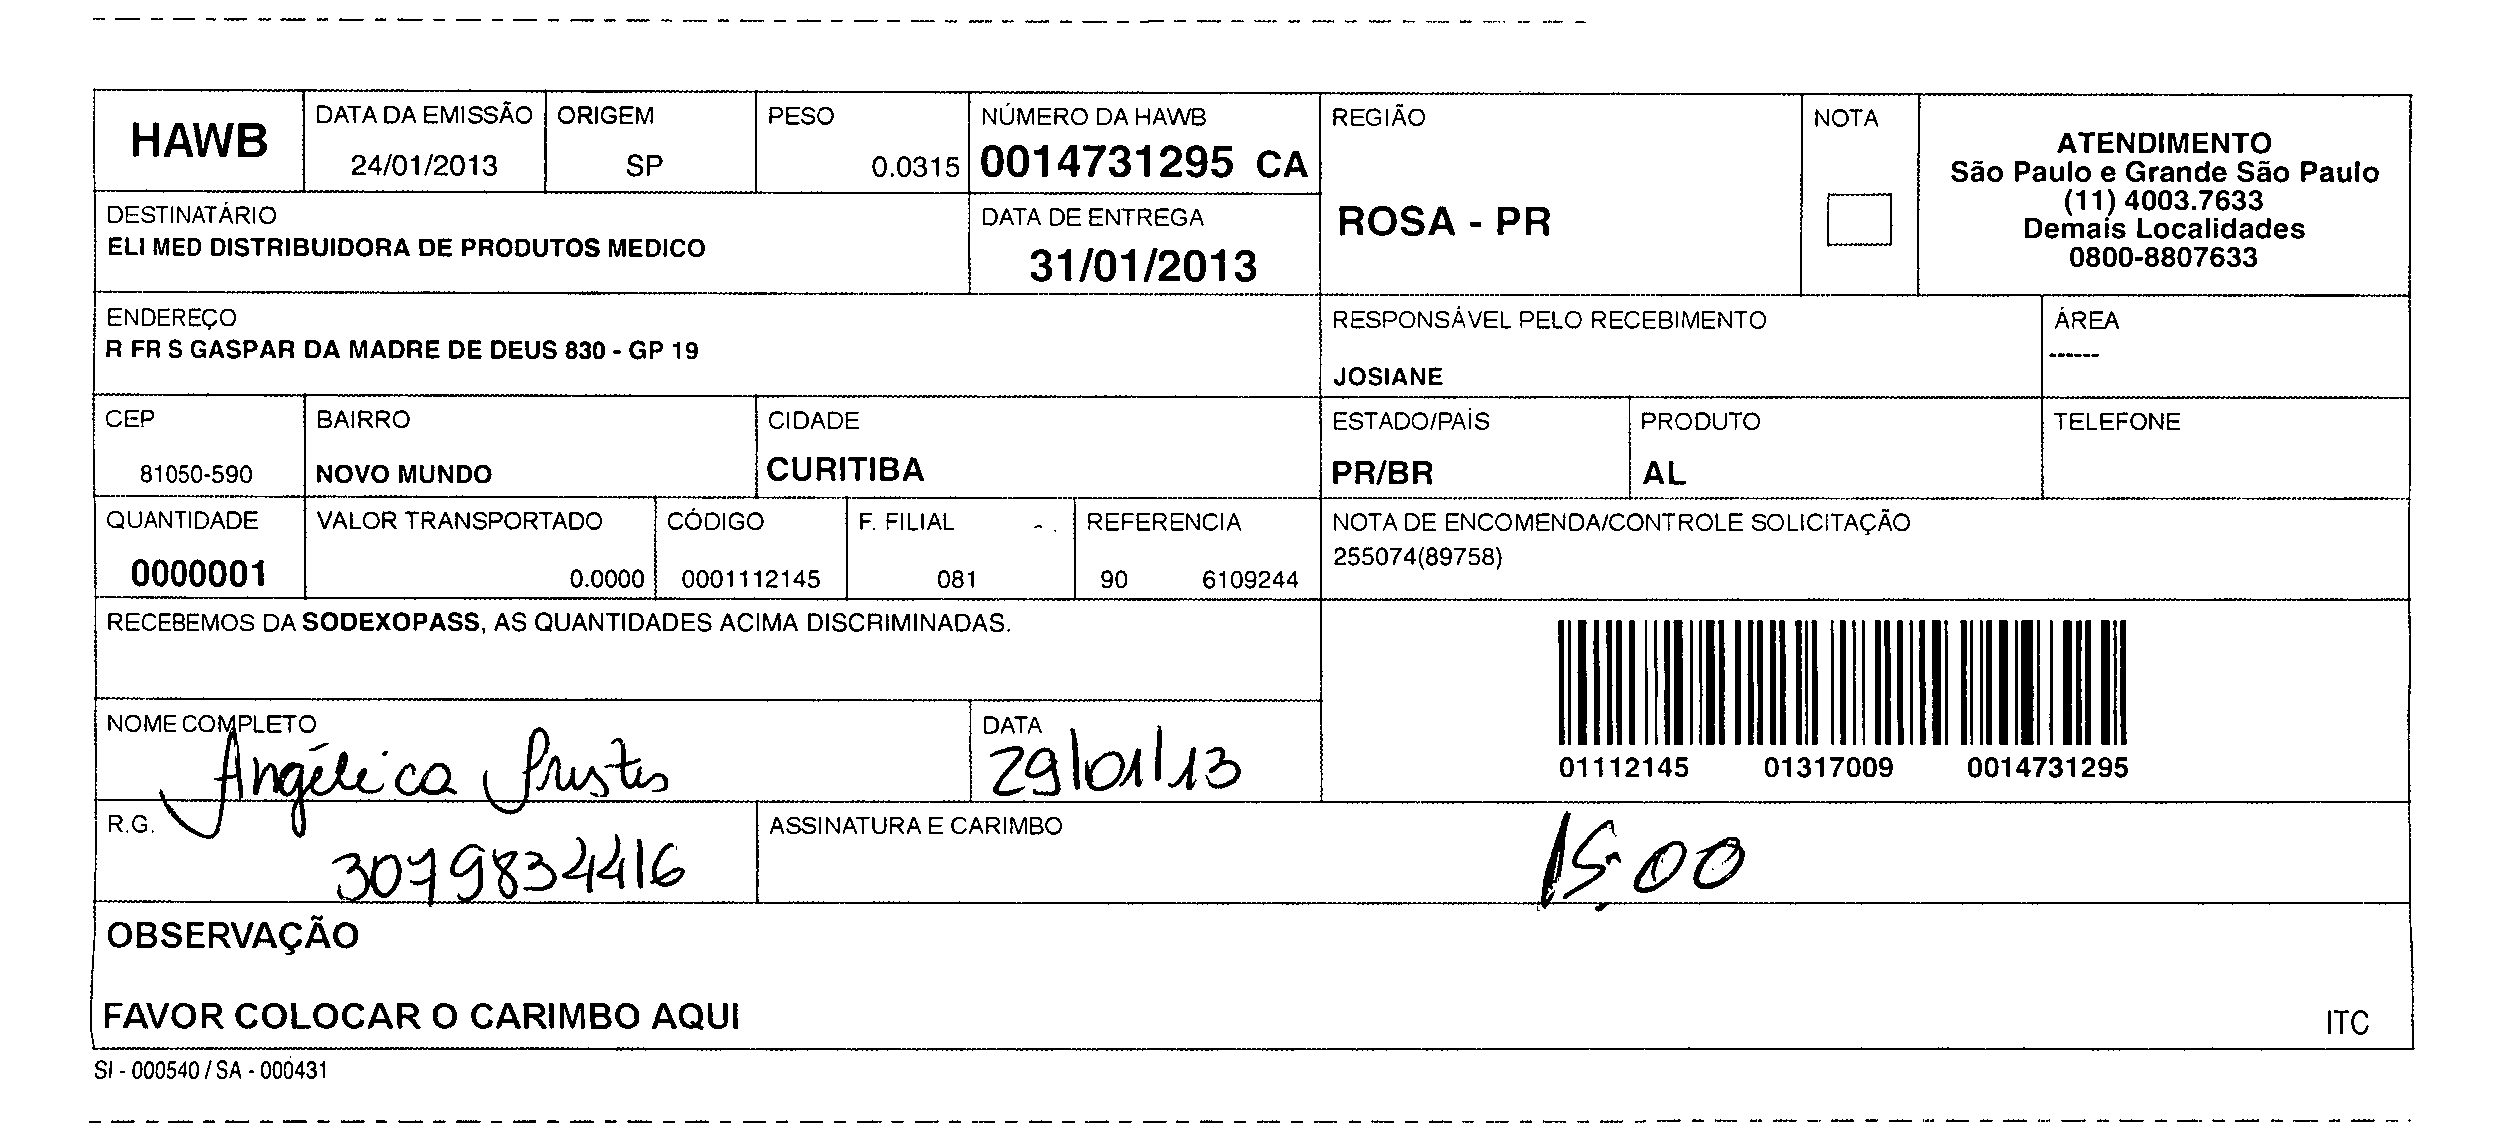 HAWB
DATA DA EMISSÃO
24/01/2013
ORIGEM
SP
PESO
0.0315
NÚMERO DA HAWB
0014731295 CA
REGIÃO
ROSA - PR
NOTA
ATENDIMENTO
São Paulo e Grande São Paulo
(11) 4003.7633
Demais Localidades
0800-8807633
DESTINATÁRIO
ELI MED DISTRIBUIDORA DE PRODUTOS MEDICO
DATA DE ENTREGA
31/01/2013
ENDEREÇO
R FR S GASPAR DA MADRE DE DEUS 830 - GP 19
RESPONSÁVEL PELO RECEBIMENTO
JOSIANE
ÁREA
------
CEP
81050-590
BAIRRO
NOVO MUNDO
CIDADE
CURITIBA
ESTADO/PAÍS
PR/BR
PRODUTO
AL
TELEFONE
QUANTIDADE
0000001
VALOR TRANSPORTADO
0.0000
CÓDIGO
0001112145
F. FILIAL
081
REFERENCIA
90 6109244
NOTA DE ENCOMENDA/CONTROLE SOLICITAÇÃO
255074(89758)
RECEBEMOS DA SODEXOPASS, AS QUANTIDADES ACIMA DISCRIMINADAS.
01112145 01317009 0014731295
NOME COMPLETO
Angélica
DATA
29/01/13
R.G.
3079834416
ASSINATURA E CARIMBO
15:00
OBSERVAÇÃO
FAVOR COLOCAR O CARIMBO AQUI
ITC
SI - 000540 / SA - 000431